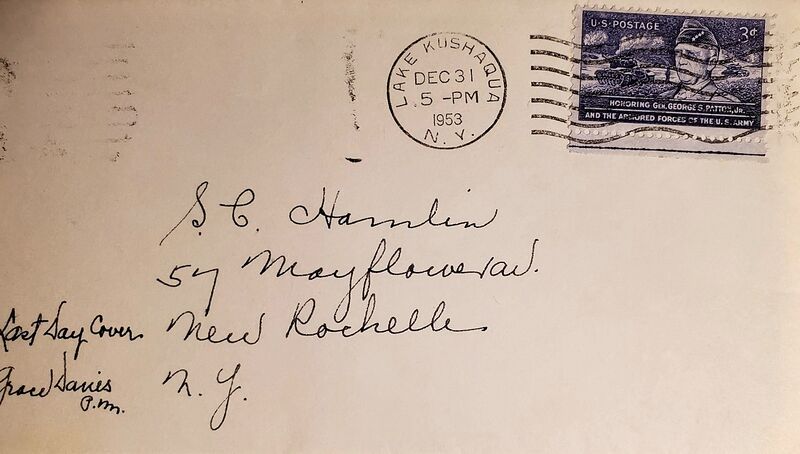 LAKE KUSHAQUA
DEC 31
5 -PM
1953
N.Y.
U.S. POSTAGE 3¢
HONORING GEN. GEORGE S. PATTON, JR.
AND THE ARMORED FORCES OF THE U.S. ARMY
S. C. Hamlin
57 Mayflower av.
New Rochelle
N. Y.
Last Day Cover
Grace Davies
P.M.